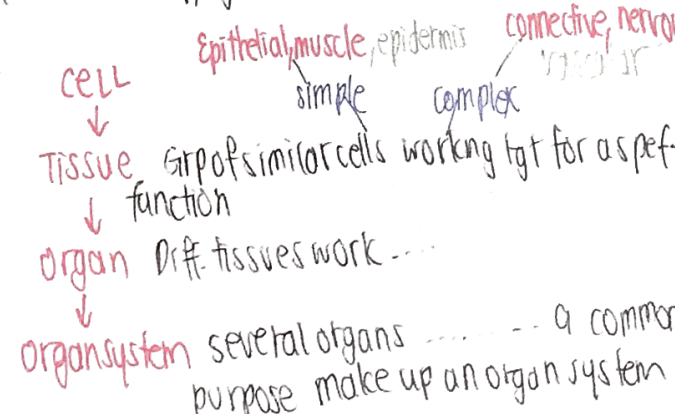 Epithelial, muscle, epidermis connective, nervo
CELL
simple complex
Tissue Grp of similar cells working tgt for a spef.
function
organ Diff. tissues work ....
organ system several organs ....... .. a common
purpose make up an organ system